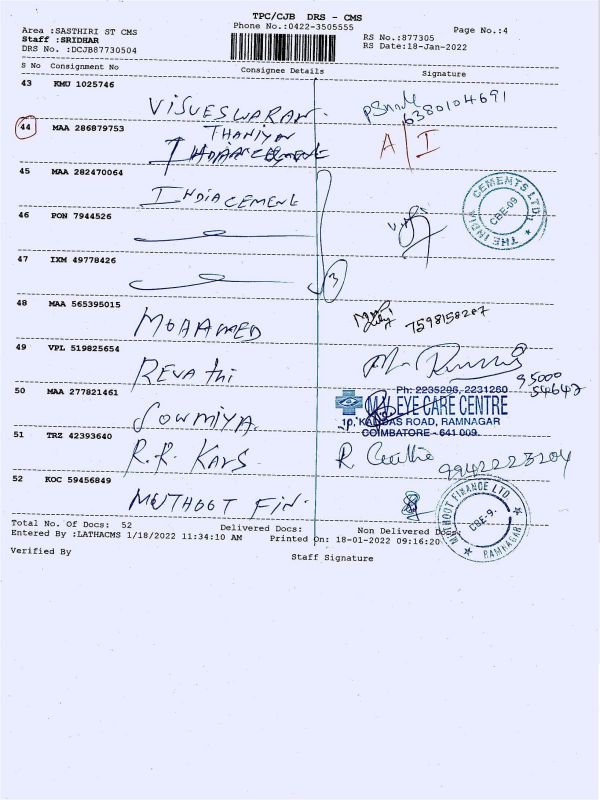 TPC/CJB DRS - CMS
Phone No.:0422-3505555
Page No.:4
Area :SASTHIRI ST CMS
Staff :SRIDHAR
DRS No. :DCJB87730504
RS No.:877305
RS Date:18-Jan-2022
S No Consignment No Consignee Details Signature
43 KMU 1025746
VISVESWARAN.
6380104691
44 MAA 286879753
THANIYA
A/I
45 MAA 282470064
INDIACEMENT
THE INDIA CEMENTS LTD.
CBE-09
46 PON 7944526
47 IXM 49778426
3
48 MAA 565395015
MOHAMED
7598158287
49 VPL 519825654
REVAthi
95000
54642
50 MAA 277821461
SOWMIYA.
Ph: 2235206, 2231260
EYE CARE CENTRE
10, KALIDAS ROAD, RAMNAGAR
COIMBATORE - 641 009.
51 TRZ 42393640
R.R. KAVS.
9942223204
52 KOC 59456849
MUTHOOT FIN.
MUTHOOT FINANCE LTD.
CBE-9.
RAMNAGAR
Total No. Of Docs: 52 Delivered Docs: Non Delivered Docs:
Entered By :LATHACMS 1/18/2022 11:34:10 AM Printed On: 18-01-2022 09:16:20
Verified By Staff Signature